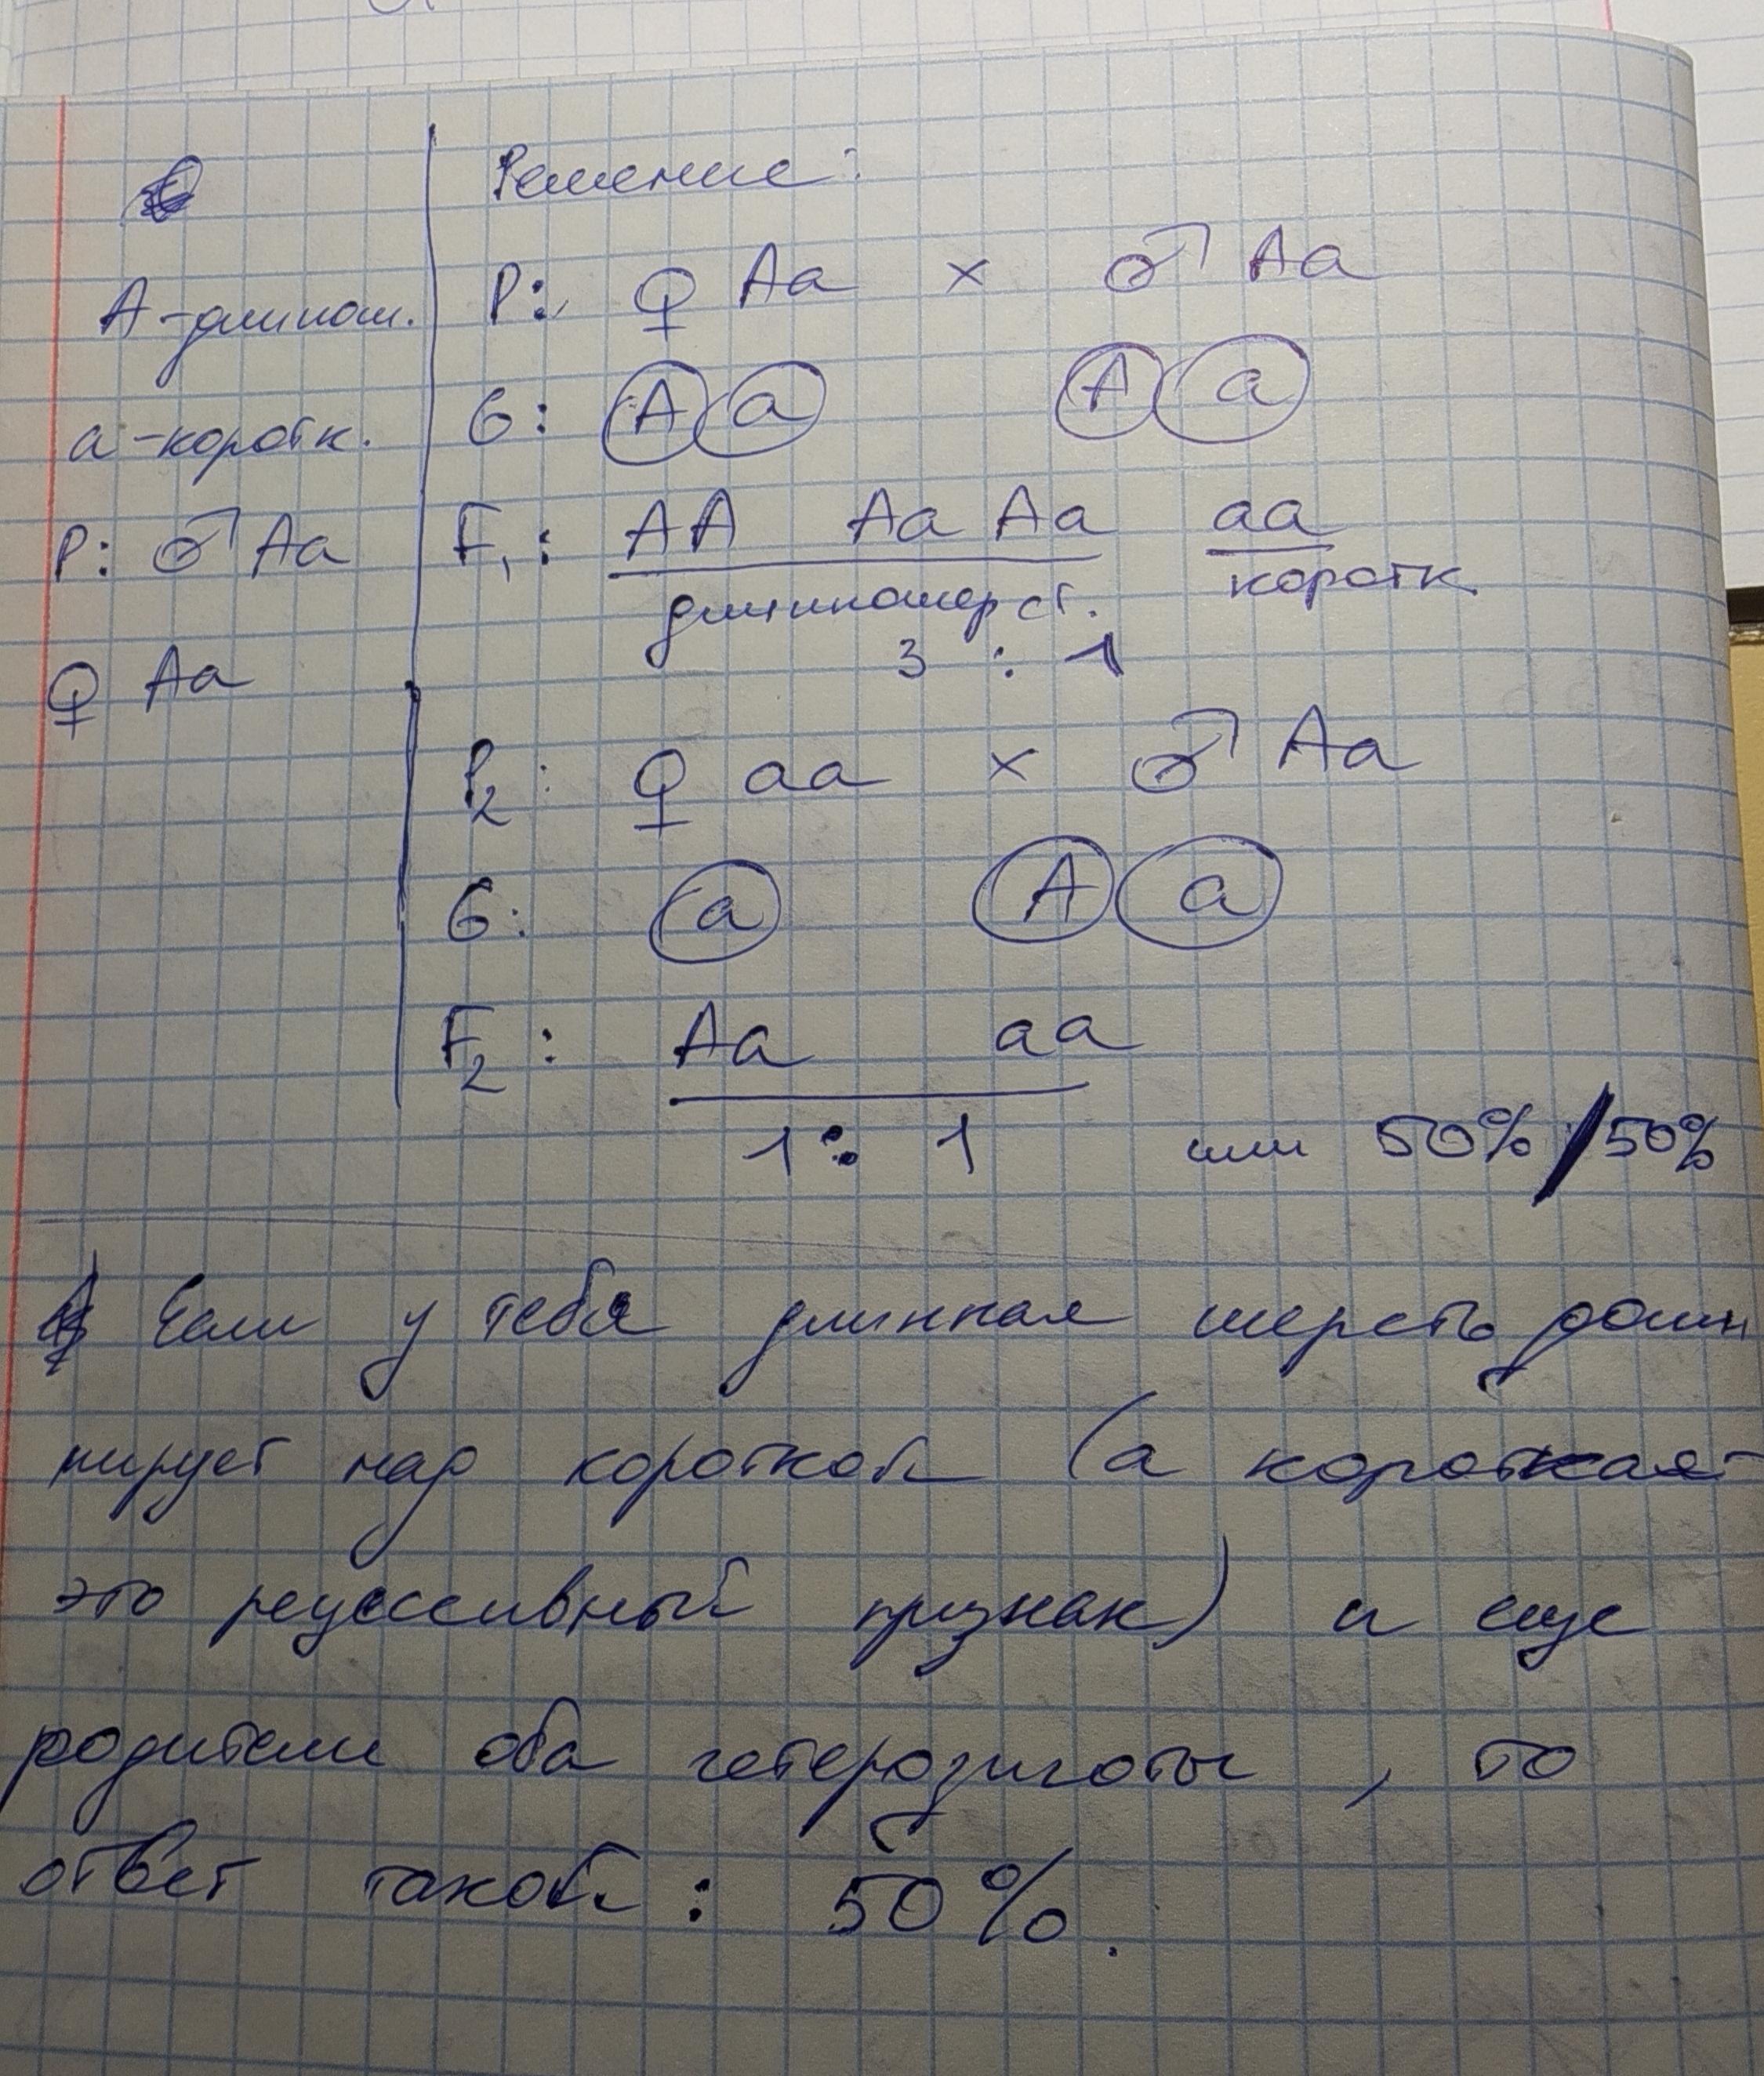 Решение:
А - длинош.
P: ♀ Aa × ♂ Aa
а - коротк.
G: A a A a
P: ♂ Aa
F1: AA Aa Aa aa
длинношерст. коротк
3 : 1
♀ Aa
P2: ♀ aa × ♂ Aa
G: a A a
F2: Aa aa
1 : 1 или 50% / 50%
Если у тебя длинная шерсть доми
нирует над короткой (а короткая -
это рецессивный признак) и еще
родители оба гетерозиготы, то
ответ такой: 50%.